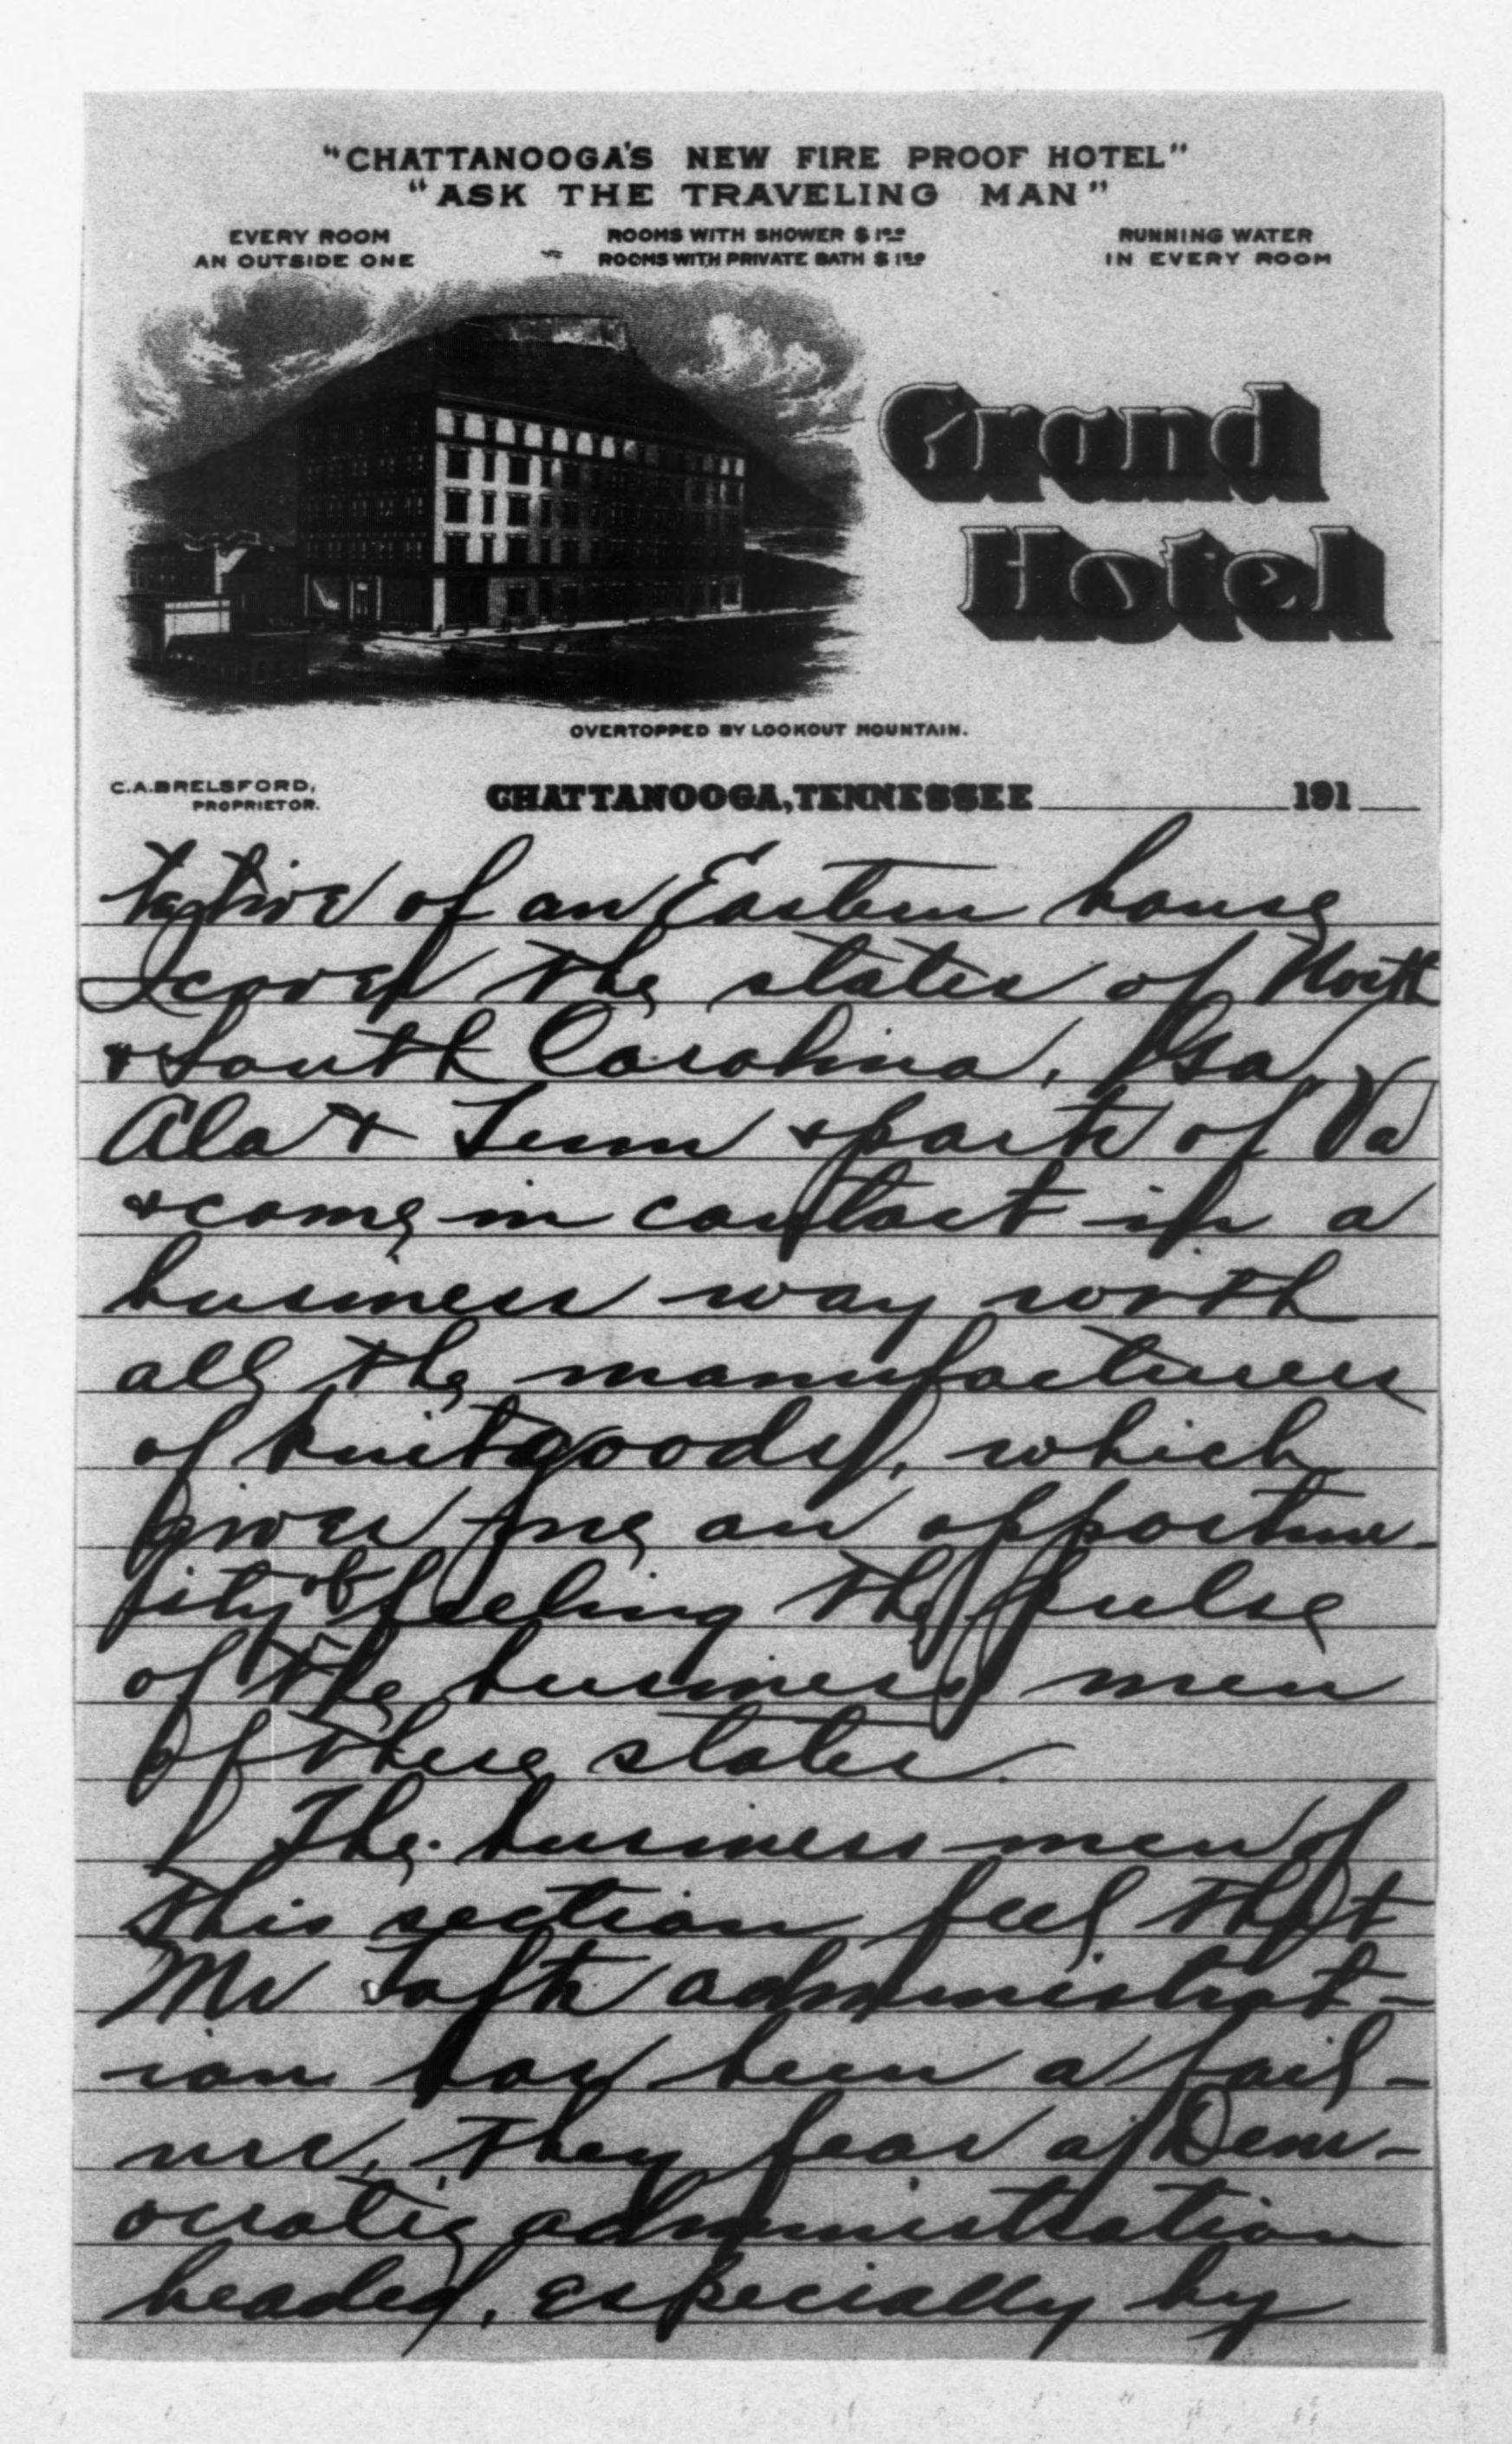 "CHATTANOOGA'S NEW FIRE PROOF HOTEL"
"ASK THE TRAVELING MAN"
EVERY ROOM
AN OUTSIDE ONE
ROOMS WITH SHOWER $1.00
ROOMS WITH PRIVATE BATH $1.50
RUNNING WATER
IN EVERY ROOM
Grand
Hotel
OVERTOPPED BY LOOKOUT MOUNTAIN.
C.A. BRELSFORD,
PROPRIETOR.
CHATTANOOGA, TENNESSEE 191
tative of an Eastern house
I cover the states of North
& South Carolina, Ga,
Ala & Tenn & part of Va
& come in contact in a
business way with
all the manufacturers
of knit goods, which
gives me an opportun-
ity of feeling the pulse
of the business men
of these states.
The business men of
this section feel that
Mr Tafts administrat-
ion has been a fail-
ure, they fear a Dem-
ocratic administration
headed, especially by